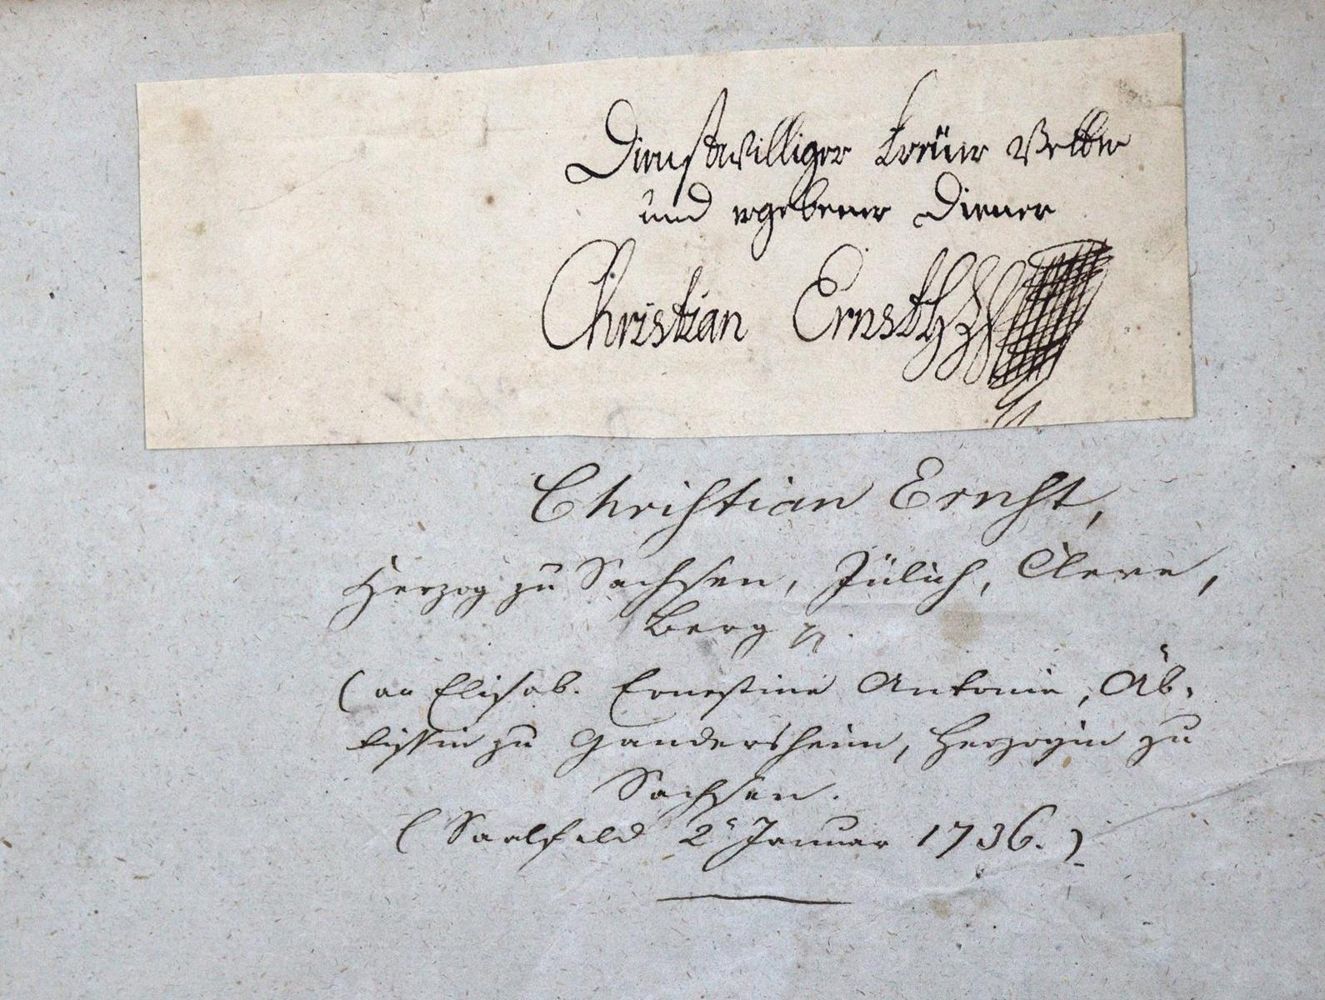 Dienstwilliger treüer Vetter
und ergebener Diener
Christian Ernst
Christian Ernst,
Herzog zu Sachsen, Jülich, Cleve,
Berg pp.
(an Elisab. Ernestine Antonie, Äb-
tissin zu Gandersheim, Herzogin zu
Sachsen.
(Saalfeld 2 Januar 1736.)